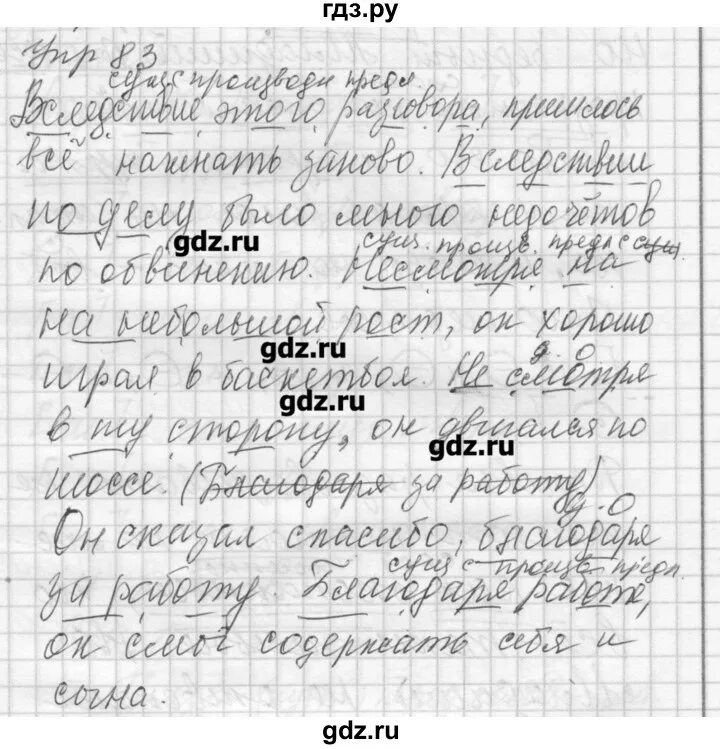 гдз.ру
Упр 83
сущ с производн предл.
Вследствие этого разговора, пришлось
всё начинать заново. В следствии
по делу было много недочётов
gdz.ru
сущ. произв. предл с сущ.
по обвинению. Несмотря на
на небольшой рост, он хорошо
gdz.ru
д. о
играл в баскетбол. Не смотря
gdz.ru
в ту сторону, он двигался по
gdz.ru
шоссе. (Благодаря за работу)
д. о
Он сказал спасибо, благодаря
сущ с произв предл.
за работу. Благодаря работе,
он смог содержать себя и
сына.
gdz.ru